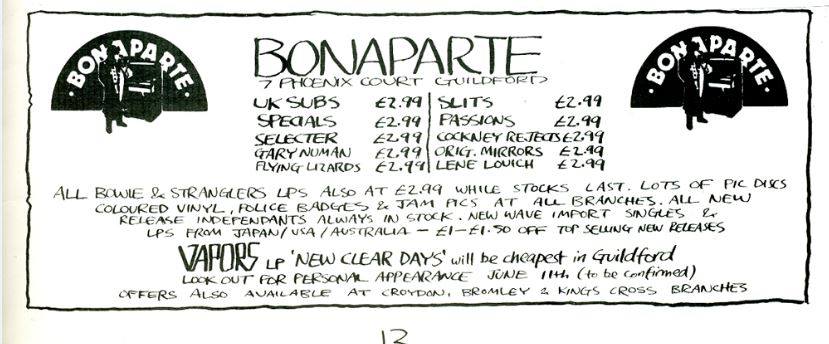 BONAPARTE
BONAPARTE
BONAPARTE
7 PHOENIX COURT GUILDFORD
UK SUBS £2.99 SLITS £2.99
SPECIALS £2.99 PASSIONS £2.99
SELECTER £2.99 COCKNEY REJECTS £2.99
GARY NUMAN £2.99 ORIG. MIRRORS £2.99
FLYING LIZARDS £2.99 LENE LOVICH £2.99
ALL BOWIE & STRANGLERS LPS ALSO AT £2.99 WHILE STOCKS LAST. LOTS OF PIC DISCS
COLOURED VINYL, POLICE BADGES & JAM PICS AT ALL BRANCHES. ALL NEW
RELEASE INDEPENDANTS ALWAYS IN STOCK. NEW WAVE IMPORT SINGLES &
LPS FROM JAPAN/USA/AUSTRALIA - £1-£1.50 OFF TOP SELLING NEW RELEASES
VAPORS LP 'NEW CLEAR DAYS' will be cheapest in Guildford
LOOK OUT FOR PERSONAL APPEARANCE JUNE 11th (to be confirmed)
OFFERS ALSO AVAILABLE AT CROYDON, BROMLEY & KINGS CROSS BRANCHES
13